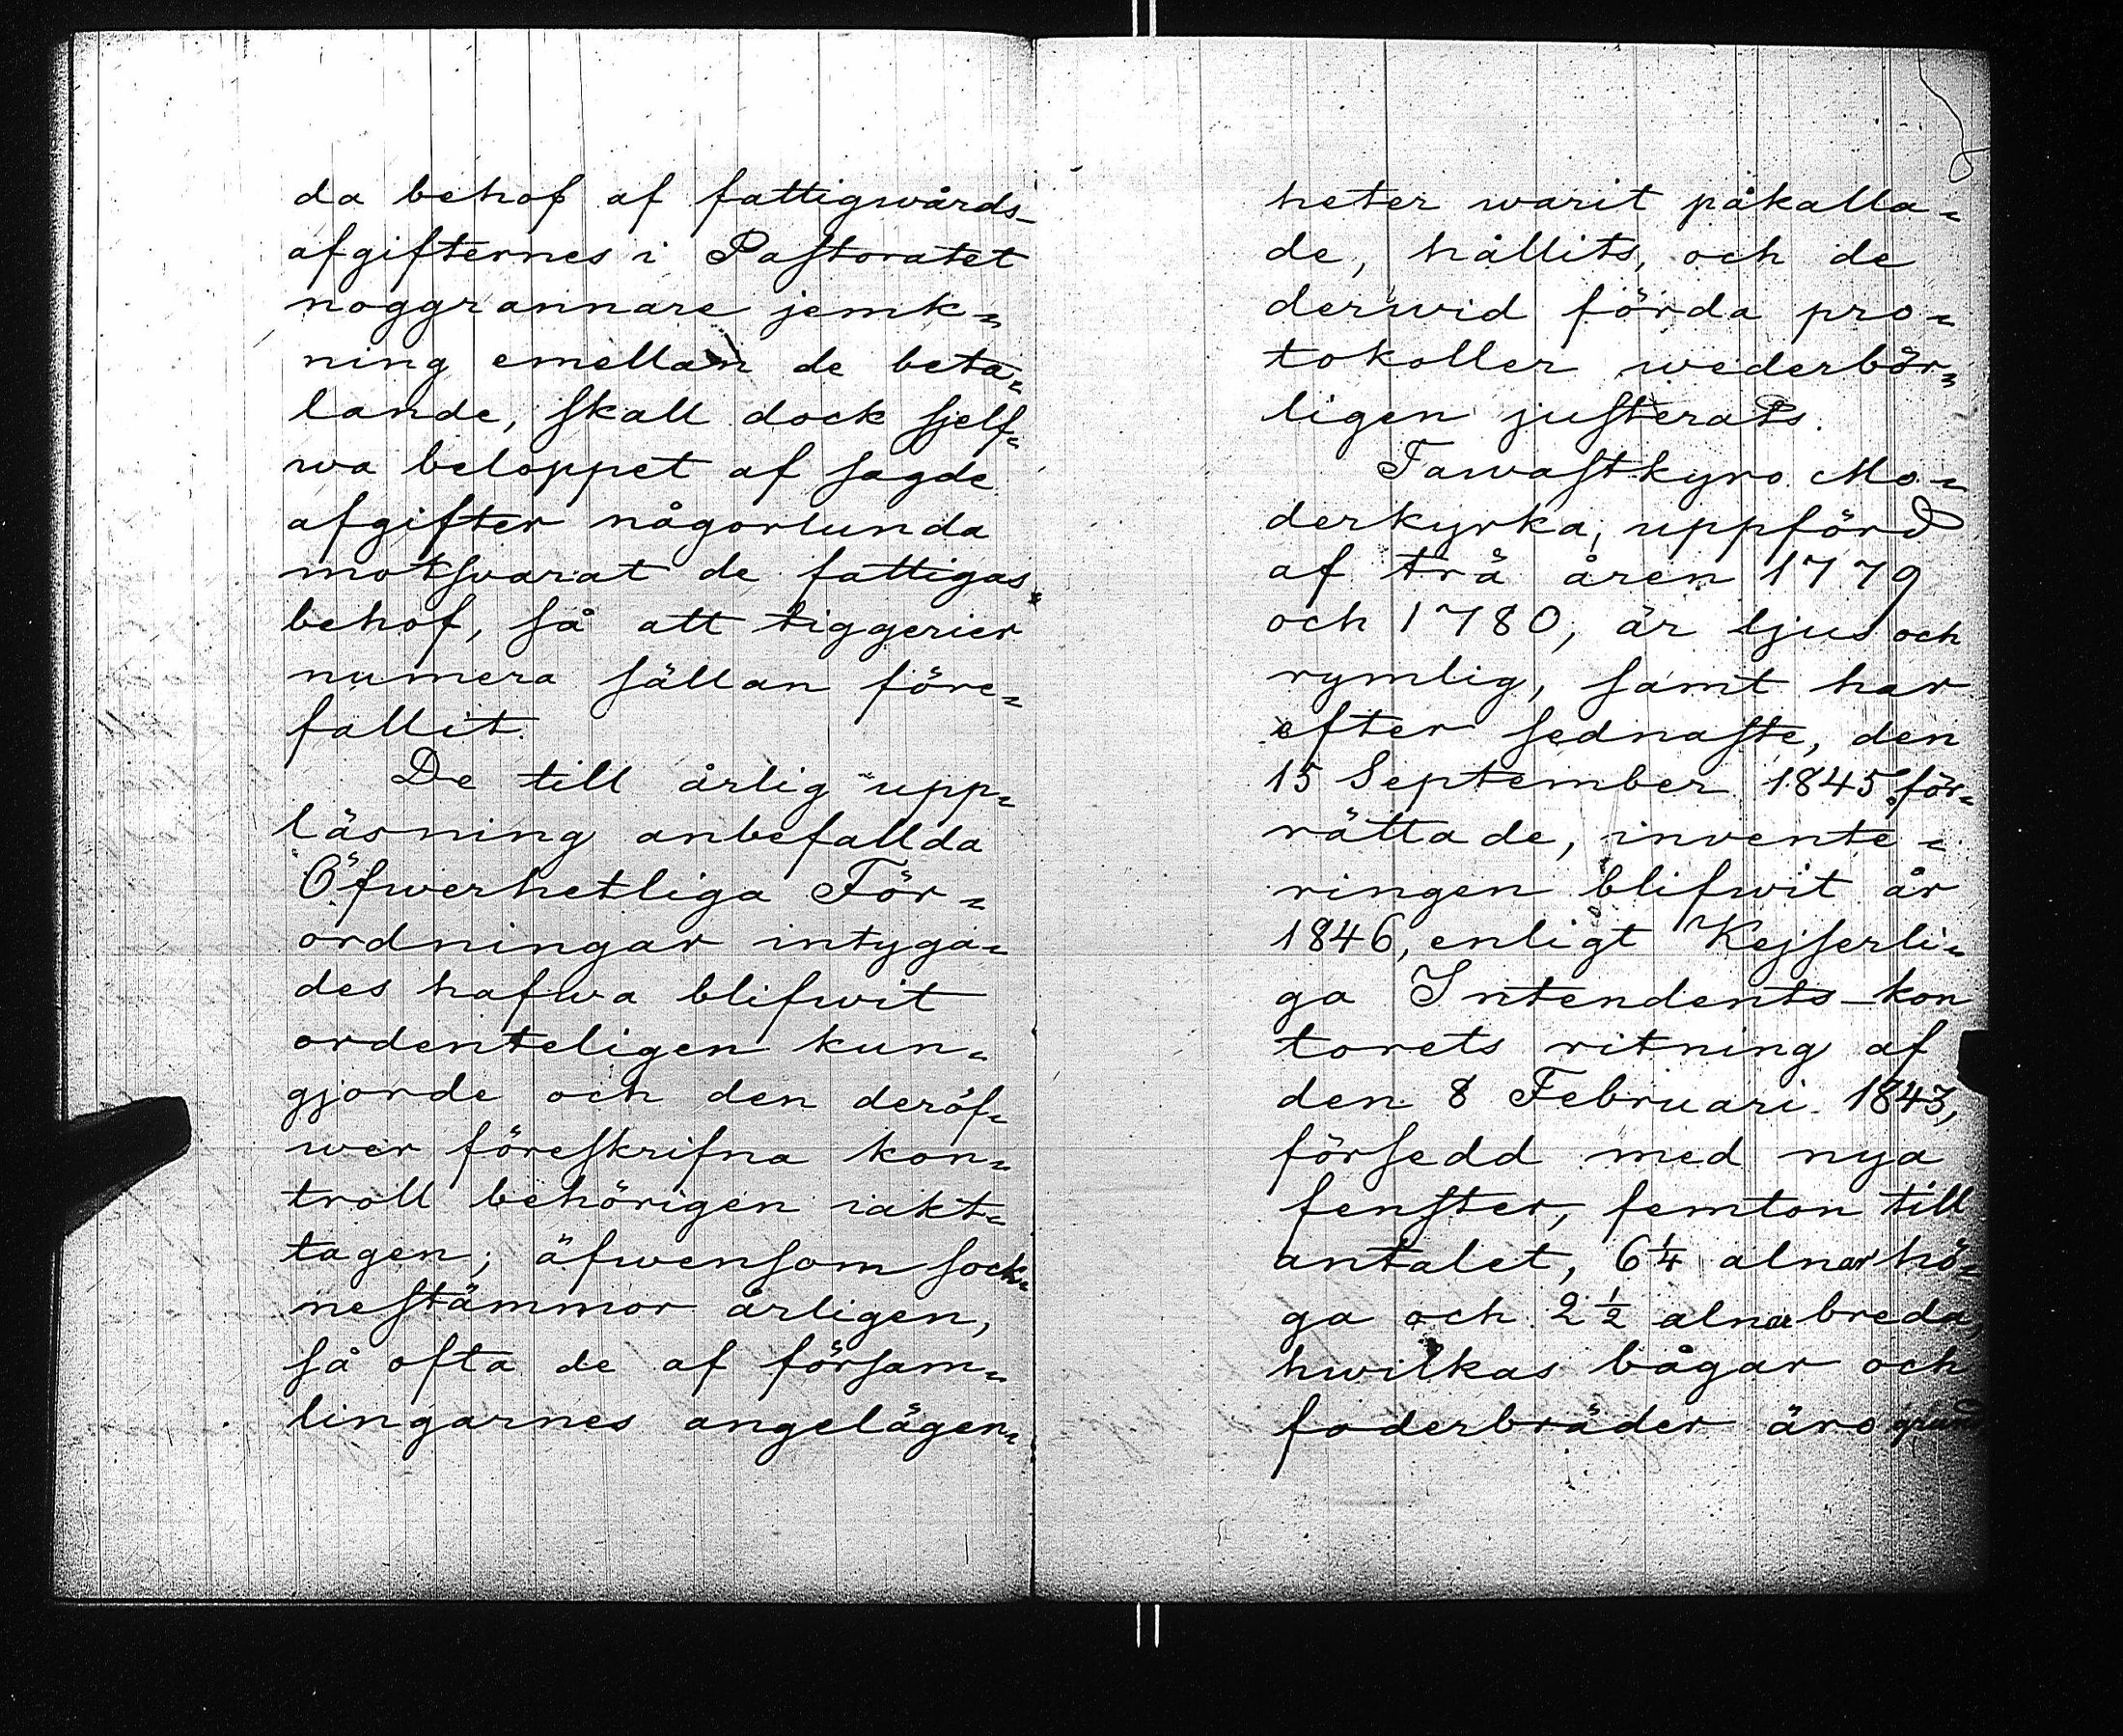 da behof af fattigwårds-
afgifternes i Pastoratet
noggrannare jemk=
ning emellan de beta=
lande, skall dock sjelf=
wa beloppet af sagde
afgifter någorlunda
motsvarat de fattigas
behof, så att tiggerier
numera sällan före=
fallit.
De till årlig upp=
läsning anbefallda
Öfwerhetliga För=
ordningar intyga=
des hafwa blifwit
ordenteligen kun=
gjorde och den deröf=
wer föreskrifna kon=
troll behörigen iakt=
tagen; äfwensom sock=
nestämmor årligen,
så ofta de af försam=
lingarnes angelägen=
heter warit påkalla=
de, hållits, och de
derwid förda pro=
tokoller wederbör=
ligen justerats.
Tawastkyro Mo=
derkyrka, uppförd
af trä åren 1779
och 1780, är ljus och
rymlig, samt har
efter sednaste, den
15 September 1845 för=
rättade, invente=
ringen blifwit år
1846, enligt Kejserli=
ga Intendents-kon
torets ritning af
den 8 Februari 1843,
försedd med nya
fenster, femton till
antalet, 6 1/4 alnar hö=
ga och 2 1/2 alnar breda,
hwilkas bågar och
foderbräder äro grund